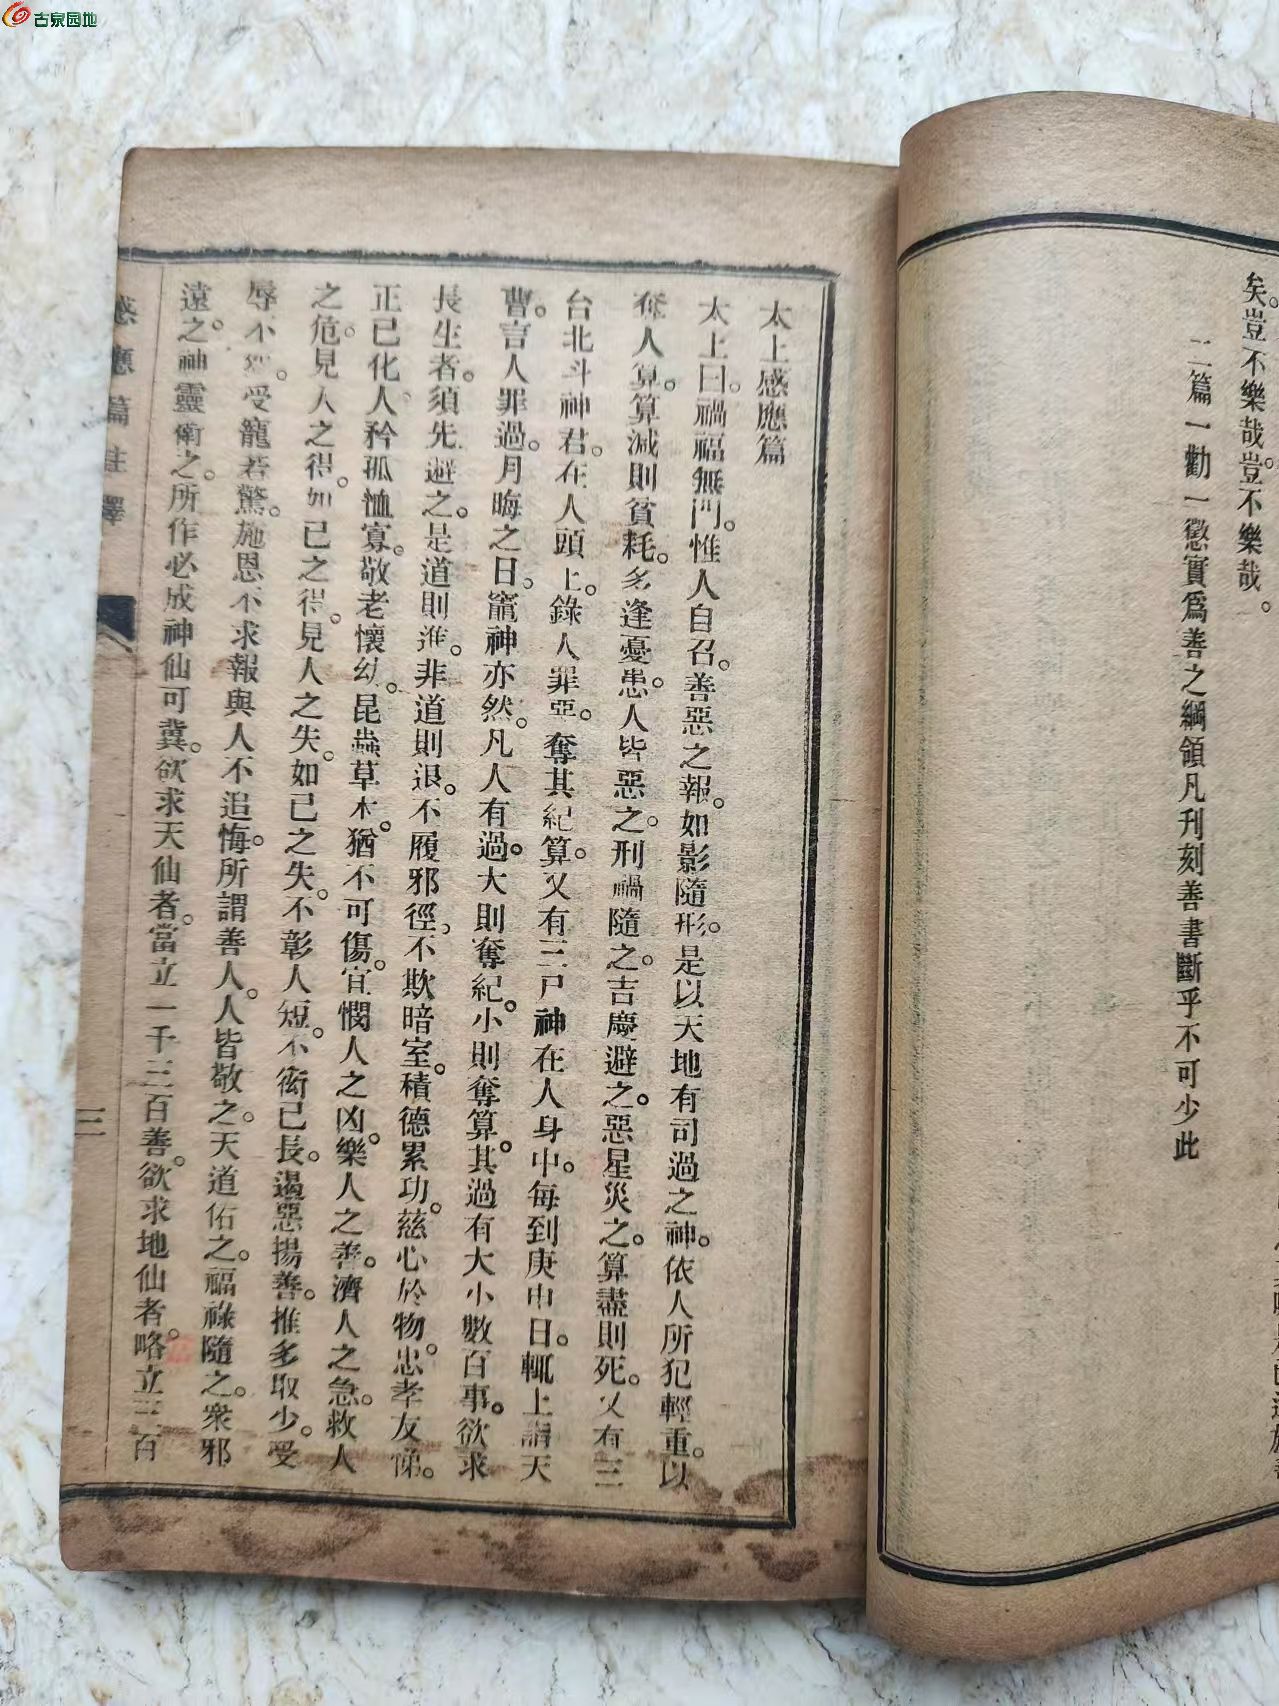 古泉园地
矣。豈不樂哉。豈不樂哉。
二篇一勸一懲實爲善之綱領凡刊刻善書斷乎不可少此
太上感應篇
太上曰。禍福無門。惟人自召。善惡之報。如影隨形。是以天地有司過之神。依人所犯輕重。以
奪人算。算減則貧耗。多逢憂患。人皆惡之。刑禍隨之。吉慶避之。惡星災之。算盡則死。又有三
台北斗神君。在人頭上。錄人罪惡。奪其紀算。又有三尸神在人身中。每到庚申日。輒上詣天
曹。言人罪過。月晦之日。竈神亦然。凡人有過。大則奪紀。小則奪算。其過有大小數百事。欲求
長生者。須先避之。是道則進。非道則退。不履邪徑。不欺暗室。積德累功。慈心於物。忠孝友悌。
正己化人。矜孤恤寡。敬老懷幼。昆蟲草木。猶不可傷。宜憫人之凶。樂人之善。濟人之急。救人
之危。見人之得。如己之得。見人之失。如己之失。不彰人短。不衒己長。遏惡揚善。推多取少。受
辱不怨。受寵若驚。施恩不求報與人不追悔。所謂善人。人皆敬之。天道佑之。福祿隨之。衆邪
遠之。神靈衛之。所作必成神仙可冀。欲求天仙者。當立一千三百善。欲求地仙者。略立三百
感應篇註釋
三